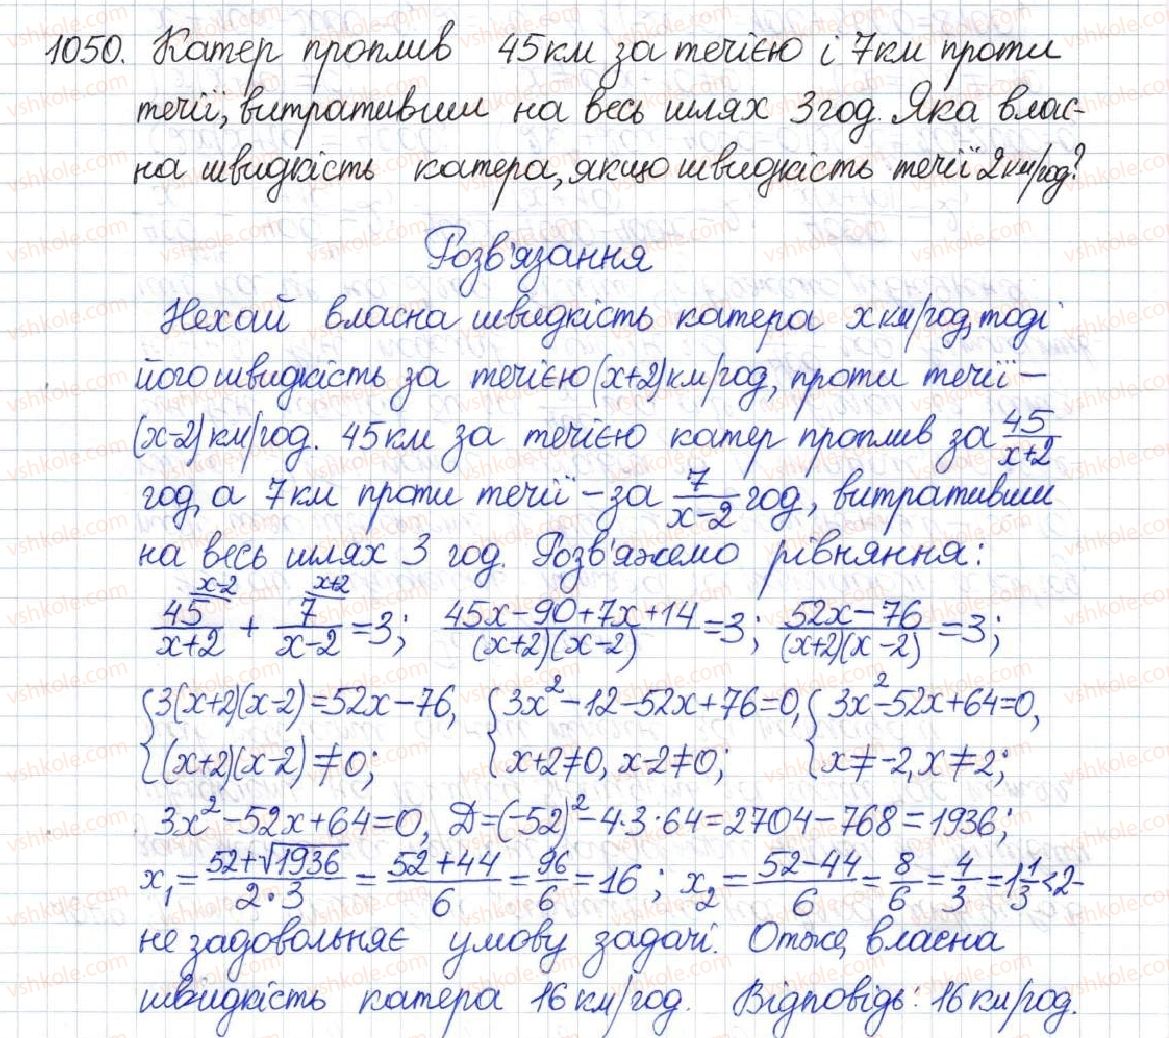 1050. Катер проплив 45 км за течією і 7 км проти
течії, витративши на весь шлях 3 год. Яка влас-
на швидкість катера, якщо швидкість течії 2 км/год?
Розв'язання
Нехай власна швидкість катера x км/год, тоді
його швидкість за течією (x+2) км/год, проти течії –
(x-2) км/год. 45 км за течією катер проплив за 45/(x+2)
год, а 7 км проти течії – за 7/(x-2) год, витративши
на весь шлях 3 год. Розв'яжемо рівняння:
x-2 x+2
45/(x+2) + 7/(x-2) = 3; (45x-90+7x+14)/((x+2)(x-2)) = 3; (52x-76)/((x+2)(x-2)) = 3;
{3(x+2)(x-2)=52x-76, {3x²-12-52x+76=0, {3x²-52x+64=0,
(x+2)(x-2)≠0; x+2≠0, x-2≠0; x≠-2, x≠2;
3x²-52x+64=0, D=(-52)²-4·3·64=2704-768=1936;
x₁=(52+√1936)/(2·3)=(52+44)/6=96/6=16; x₂=(52-44)/6=8/6=4/3=1 1/3<2-
не задовольняє умову задачі. Отже, власна
швидкість катера 16 км/год. Відповідь: 16 км/год.